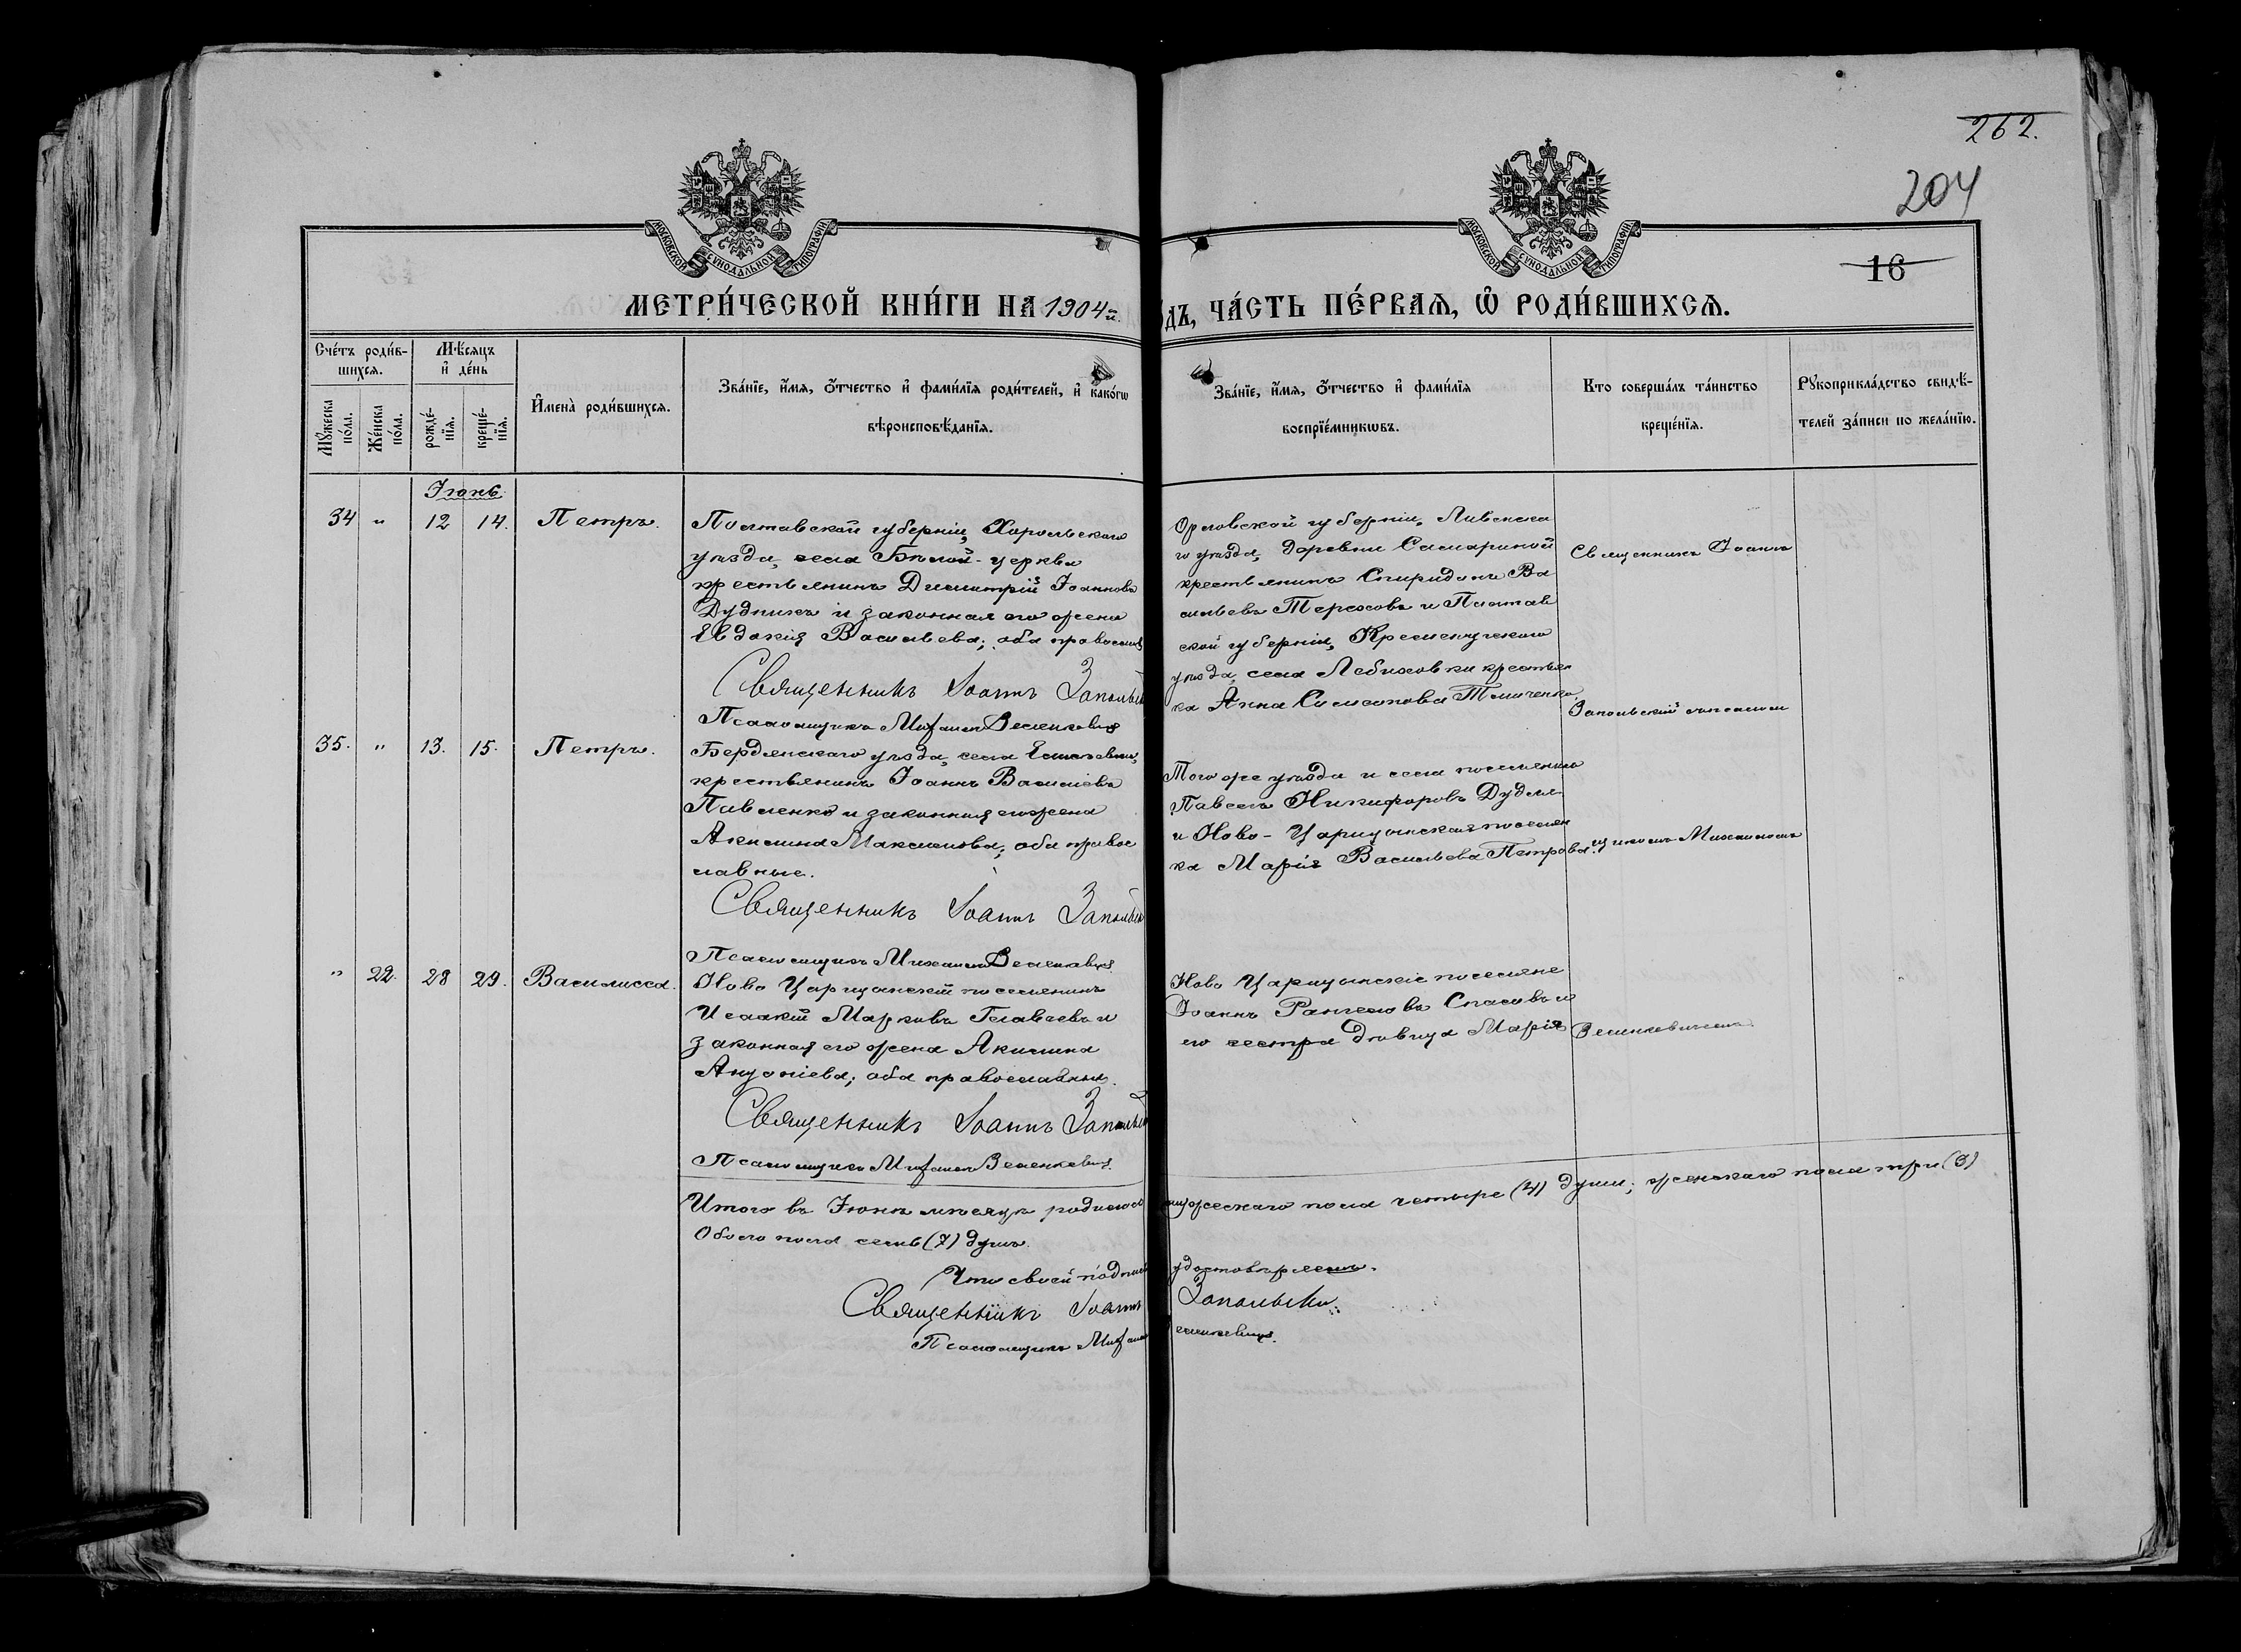 262.
204
16
МОСКОВСКОЙ СѴНОДАЛЬНОЙ ТИПОГРАФІИ
МОСКОВСКОЙ СѴНОДАЛЬНОЙ ТИПОГРАФІИ
МЕТРИ́ЧЕСКОЙ КНИ́ГИ НА 1904й.
ОДЪ, ЧА́СТЬ ПЕ́РВАЯ, Ѽ РОДИ́ВШИХСЯ.
Сче́тъ роди́в-
шихся.
Мѣ́сяцъ
и҆ де́нь
Мꙋ́жеска по́ла.
Же́нска по́ла.
рожде́-
нїя.
креще́-
нїя.
И҆мена̀ роди́вшихся.
Зва́нїе, и҆́мя, ѻ҆́тчество и҆ фами́лїя роди́телей, и҆ како́гѡ
вѣроисповѣ́данїя.
Зва́нїе, и҆́мя, ѻ҆́тчество и҆ фами́лїя
воспрїе́мникѡвъ.
Кто соверша́лъ та́инство
креще́нїя.
Рꙋкоприкла́дство свидѣ́-
телей за́писи по жела́нїю.
Іюнь.
34 " 12 14. Петръ.
Полтавской губерніи, Хорольскаго
уѣзда, села Бѣлой-церкви
крестьянинъ Димитрій Іоанновъ
Дудникъ и законная его жена
Евдокія Васильева; оба православ
Священникъ Іоаннъ Запольск
Псаломщикъ Михаилъ Веленкевичъ
Орловской губерніи, Ливенска
го уѣзда, деревни Самариной
крестьянинъ Спиридонъ Ва
сильевъ Тереховъ и Полтав
ской губерніи, Кременчугскаго
уѣзда, села Лебиховки крестьян
ка Анна Симеонова
Священникъ Іоаннъ
Запольскій съ псалом
35. " 13. 15. Петръ.
Бердянскаго уѣзда, села
крестьянинъ Іоаннъ Василіевъ
Павленко и законная его жена
Акилина Максимова; оба правос
лавные.
Священникъ Іоаннъ Запольск
Псаломщикъ Михаилъ Веленкевичъ
Того же уѣзда и села поселянинъ
Павелъ Никифоровъ
и Ново-Царицынская поселян
ка Марія Васильева Петрова.
щикомъ Михаиломъ
" 22. 28 29. Василисса.
Ново Царицынскій поселянинъ
Исаакій Марковъ Главчевъ и
законная его жена Акилина
оба православные.
Священникъ Іоаннъ Запольск
Псаломщикъ Михаилъ Веленкевичъ
Ново Царицынскіе поселяне
Іоаннъ Рангеловъ Спасовъ и
его сестра дѣвица Марія
Веленкевичемъ.
Итого въ Іюнѣ мѣсяцѣ родилось мужескаго пола четыре (4) души; женскаго пола три (3)
Обоего пола семь (7) душъ.
Что своей подписью удостовѣряемъ.
Священникъ Іоаннъ Запольскій
Псаломщикъ Михаилъ Веленкевичъ.